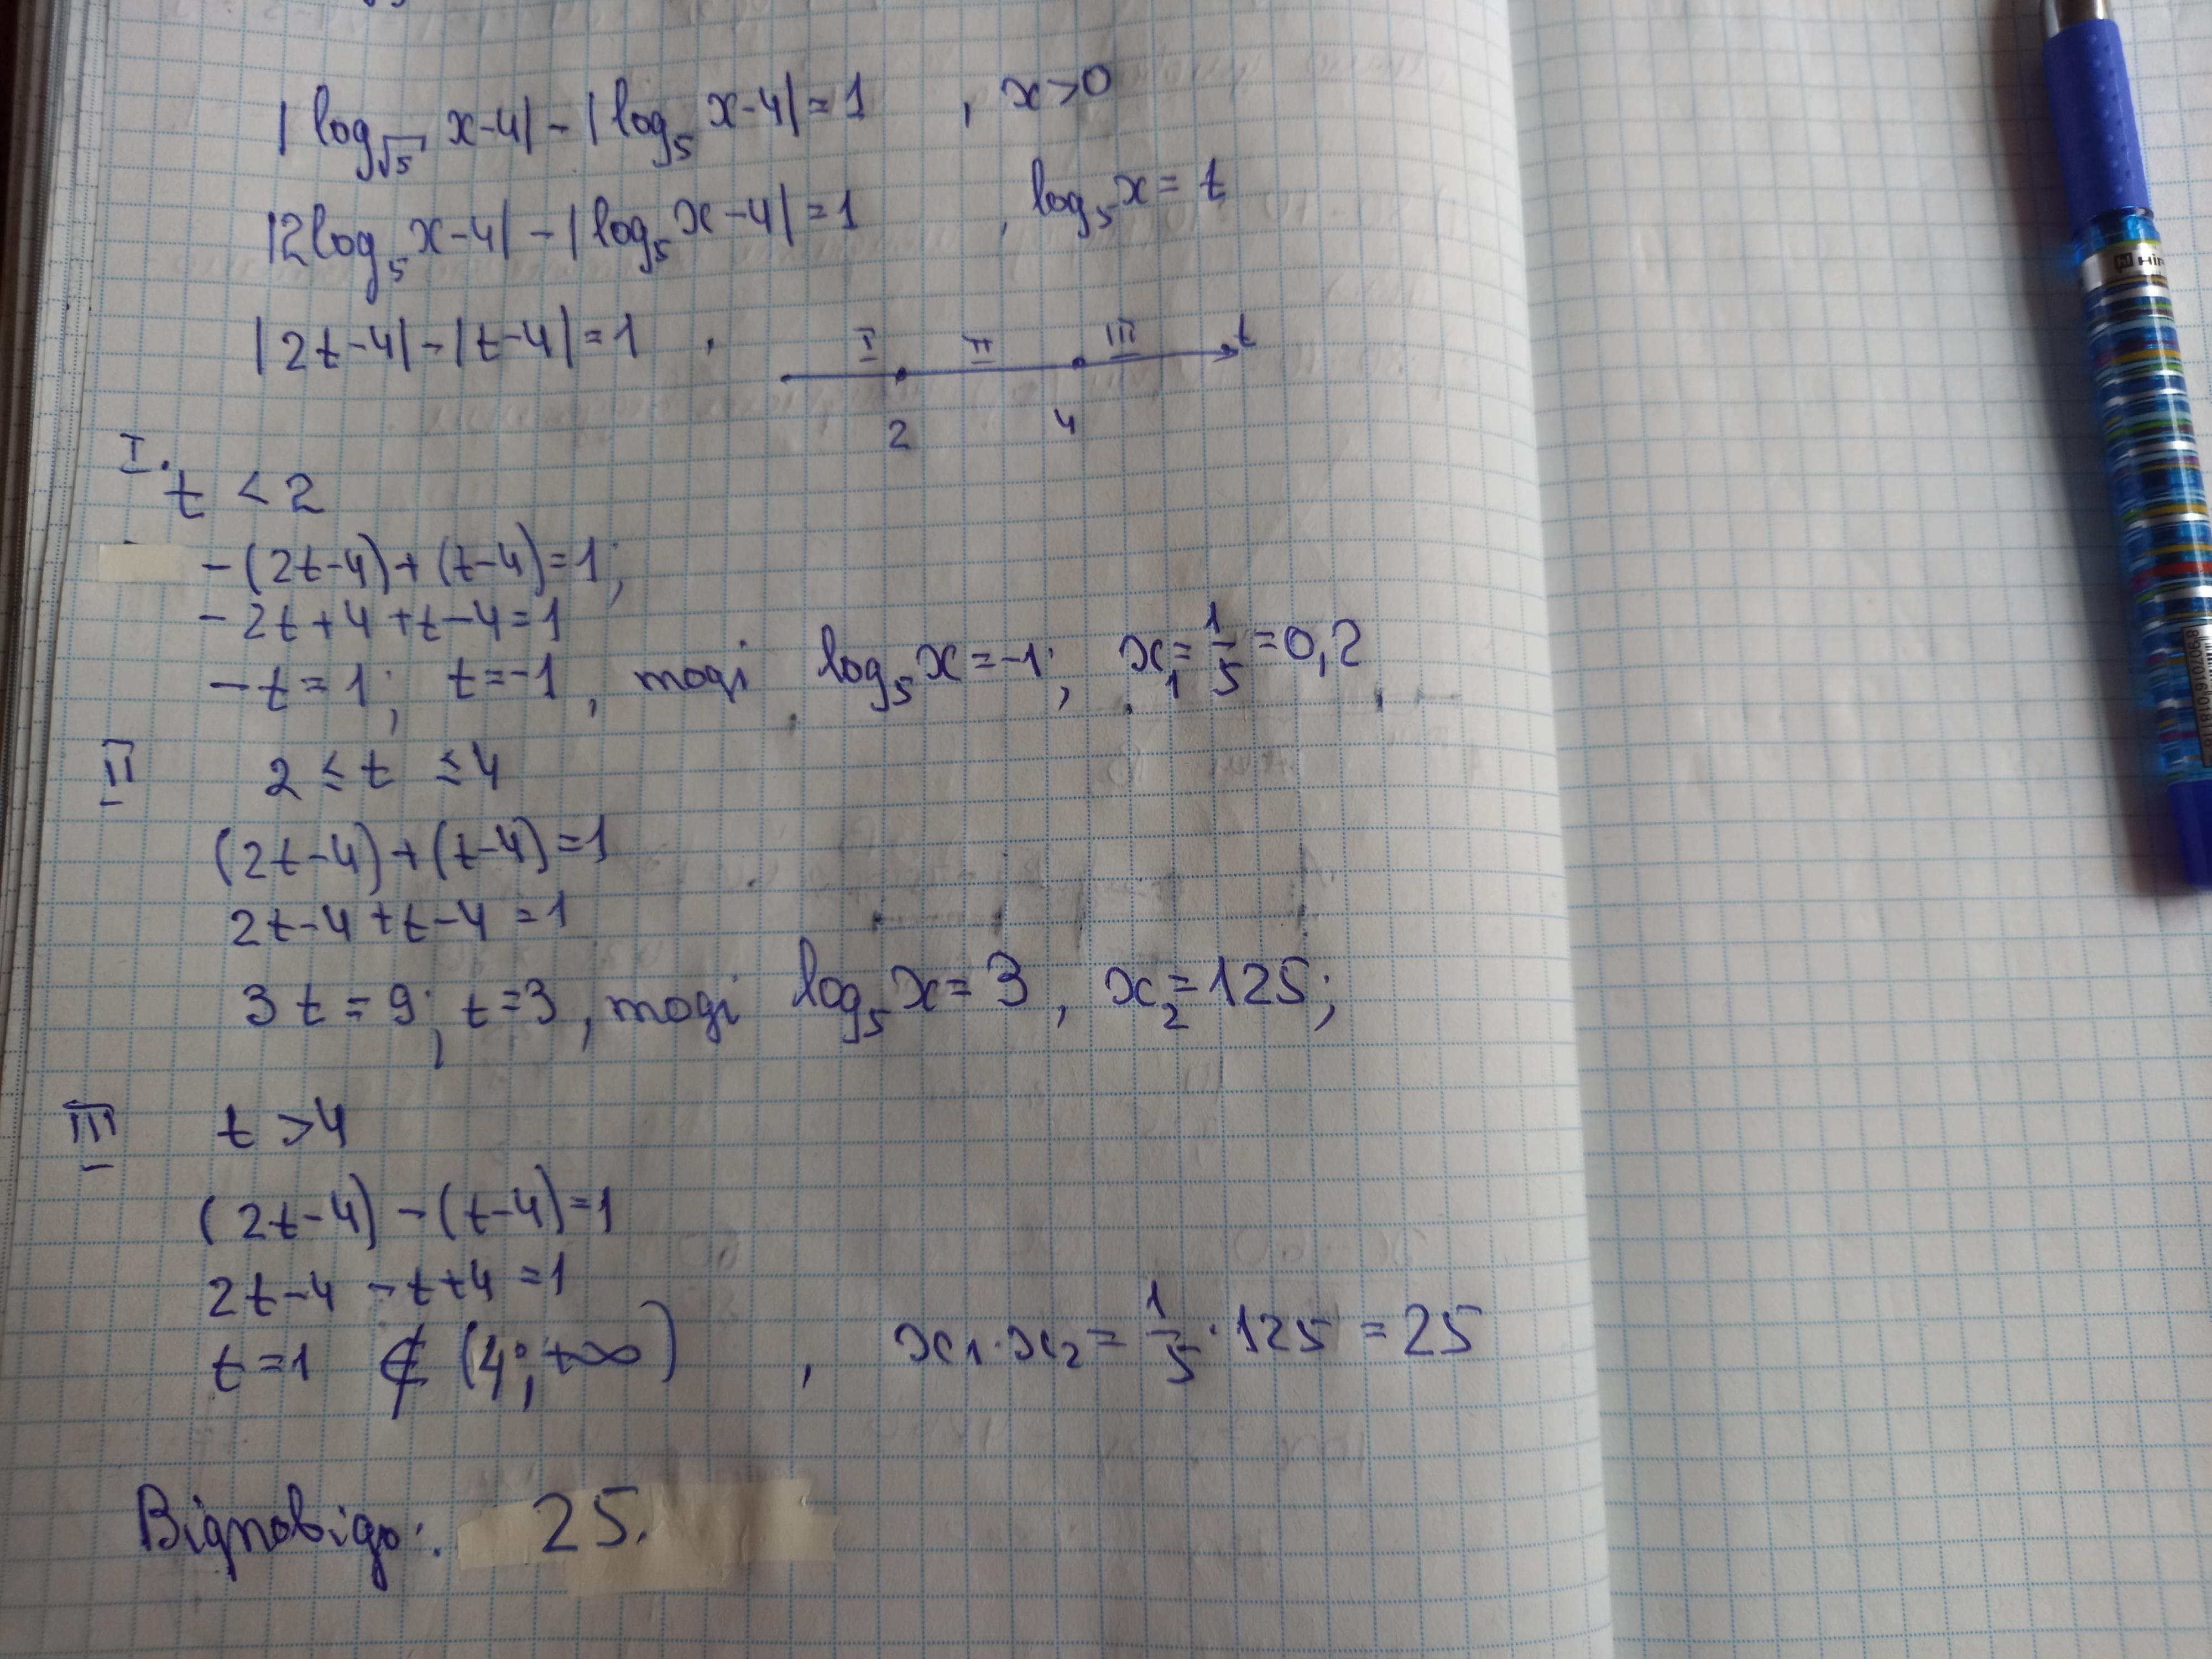 |log_√5 x-4| - |log_5 x-4| = 1 , x>0
|2log_5 x-4| - |log_5 x-4| = 1 , log_5 x = t
|2t-4| - |t-4| = 1 ,
I II III t
2 4
I. t < 2
-(2t-4)+(t-4)=1;
-2t+4+t-4=1
-t=1; t=-1, тоді log_5 x=-1; x_1=1/5=0,2,
II 2 ≤ t ≤ 4
(2t-4)+(t-4)=1
2t-4+t-4=1
3t=9; t=3, тоді log_5 x=3, x_2=125;
III t >4
(2t-4)-(t-4)=1
2t-4-t+4=1
t=1 ∉ (4;+∞) , x_1·x_2=1/5·125=25
Відповідь: 25.